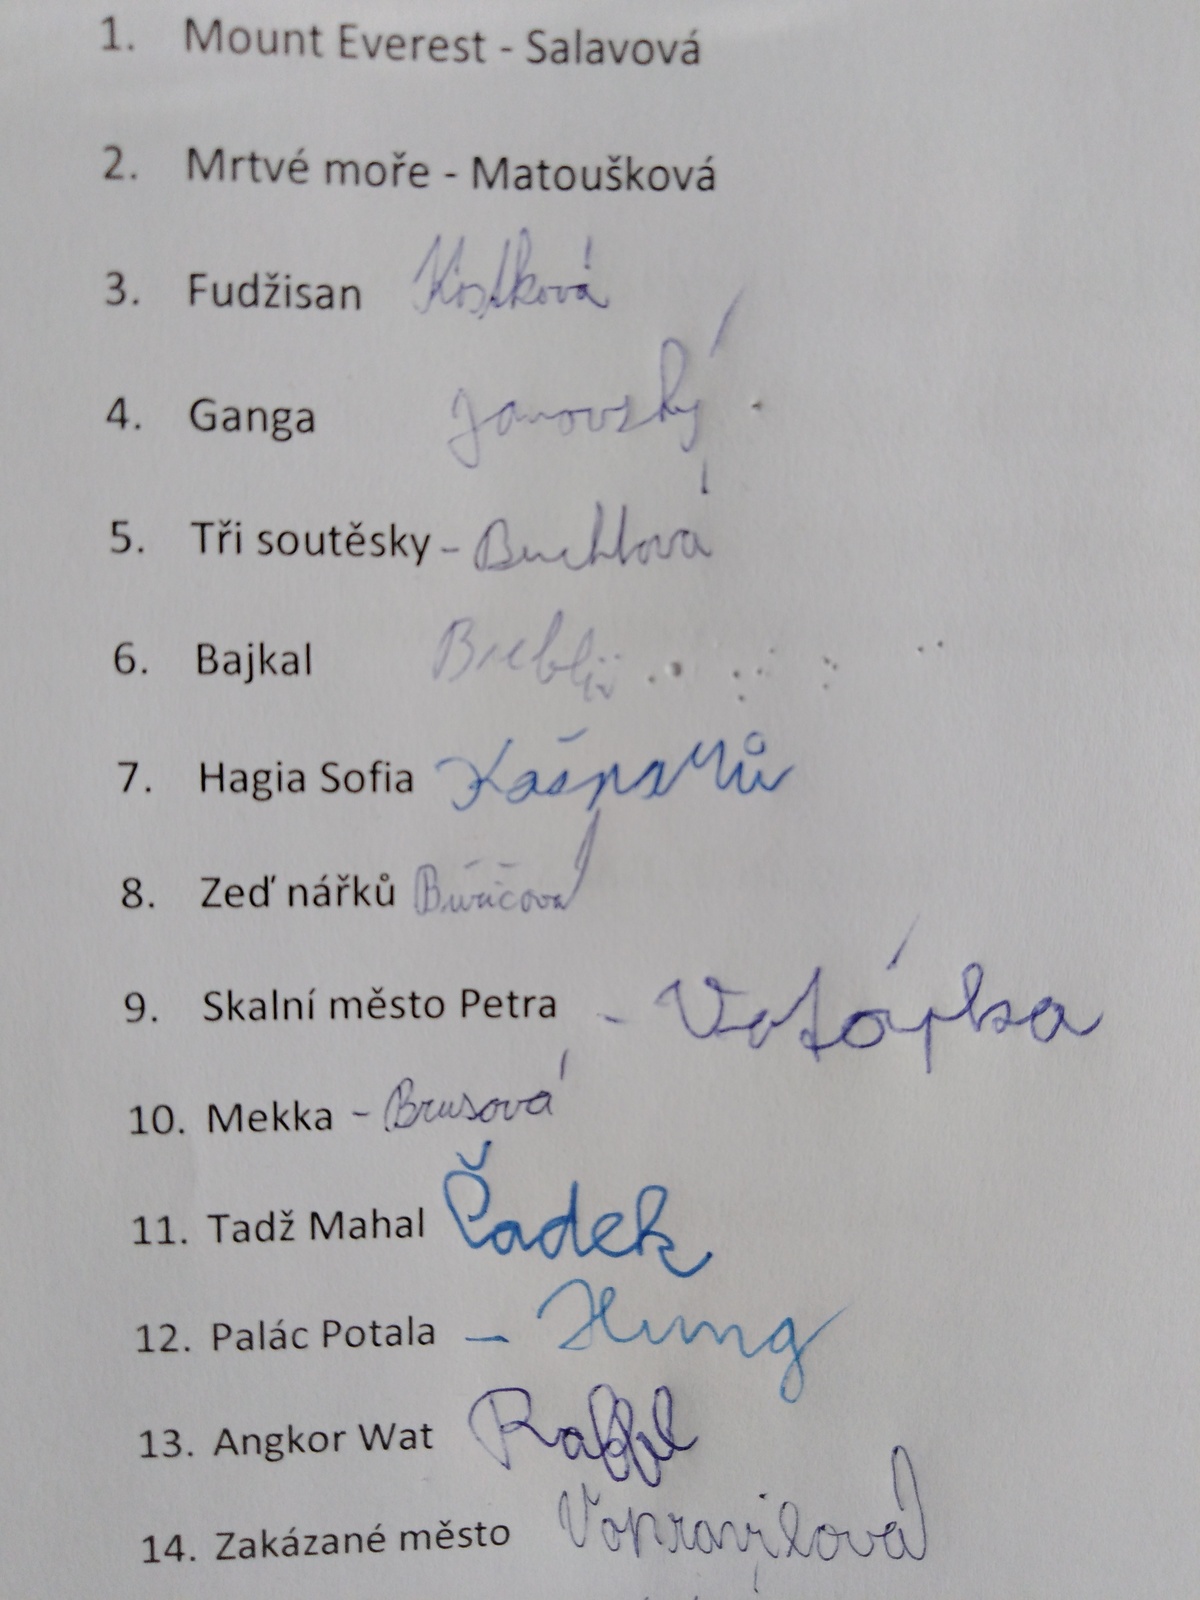 1. Mount Everest - Salavová
2. Mrtvé moře - Matoušková
3. Fudžisan Kostková
4. Ganga Janovský
5. Tři soutěsky - Buchlová
6. Bajkal
7. Hagia Sofia Kašparů
8. Zeď nářků
9. Skalní město Petra - Votápka
10. Mekka - Brusová
11. Tadž Mahal Čadek
12. Palác Potala - Hung
13. Angkor Wat Raffl
14. Zakázané město Vopravilová